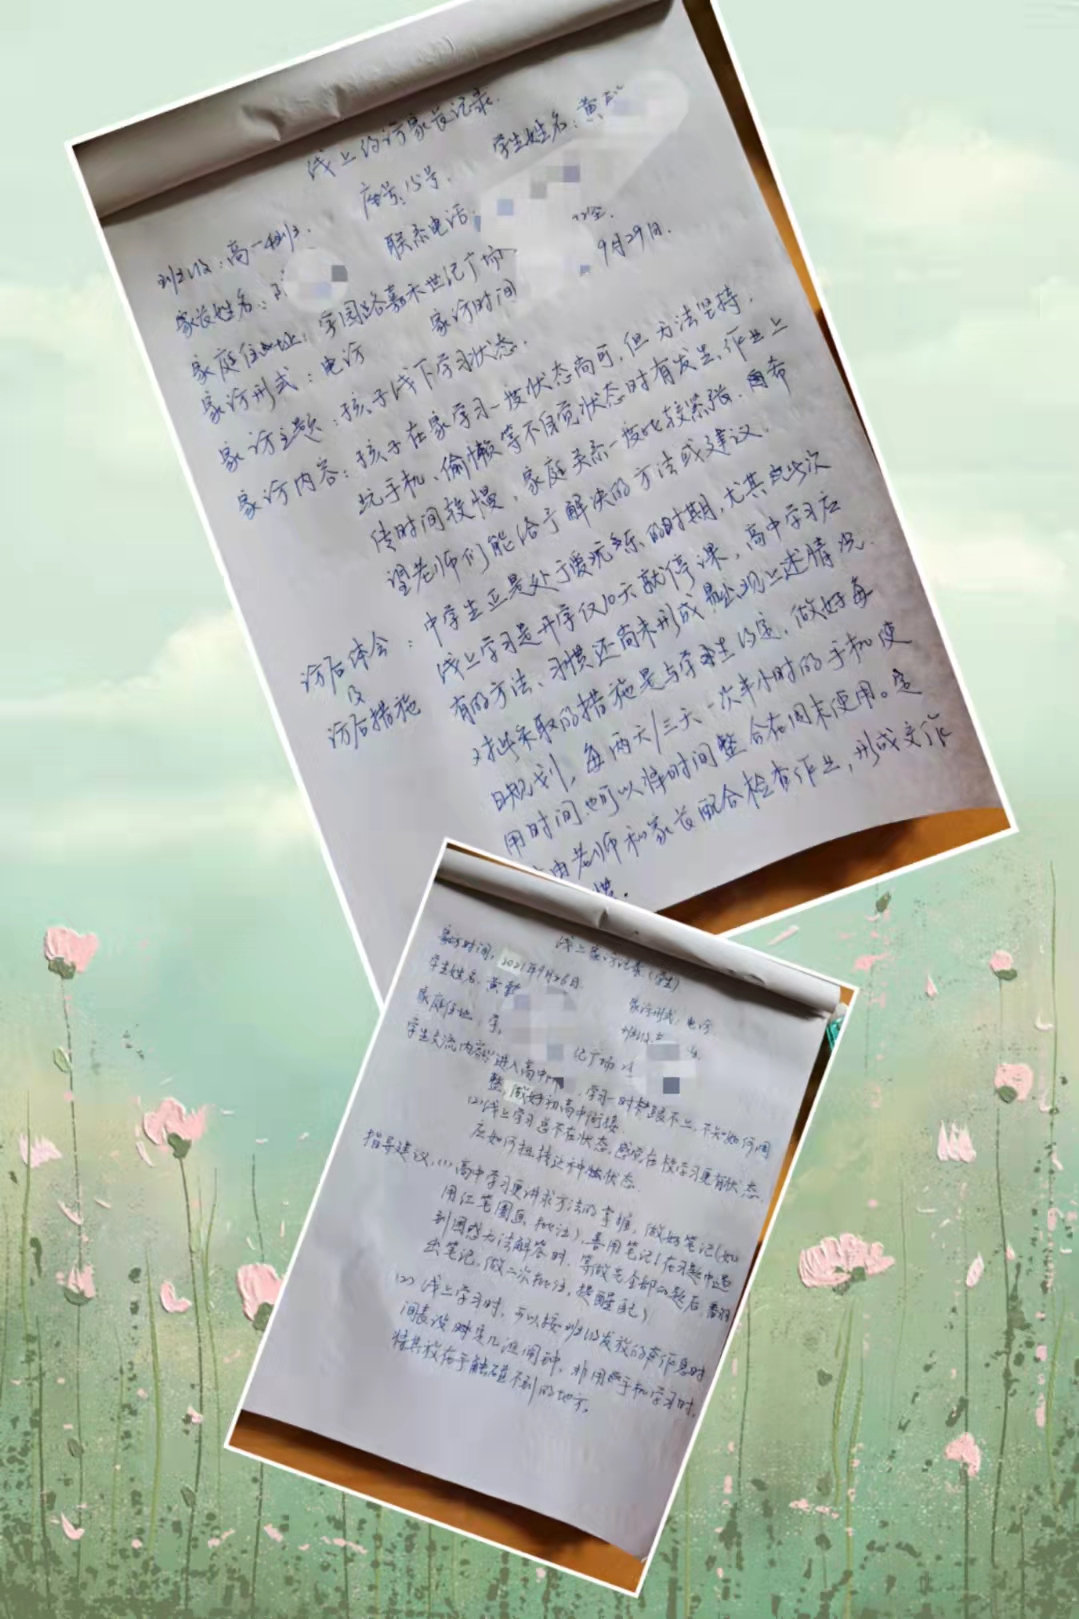 线上约访家长记录.
座号:15号. 学生姓名:黄
班级:高一4班.
家长姓名: 联系电话:
家庭住址:学园路嘉禾世记广场
家访形式:电访 家访时间 9月29日.
家访主题:孩子线下学习状态.
家访内容:孩子在家学习一度状态尚可,但无法坚持,
玩手机、偷懒等不自觉状态时有发生,作业上
传时间较慢,家庭关系一度比较紧张.希
望老师们能给予解决的方法或建议.
访后体会及访后措施:中学生正是处于爱玩乐的时期,尤其此次
线上学习是开学仅10天就停课,高中学习应
有的方法、习惯还尚未形成易出现上述情况.
对此采取的措施是与学生约定,做好每
日规划,每两天/三天一次半小时的手机使
用时间也可以将时间整合在周末使用。定
由老师和家长配合检查作业,形成交作
惯.
线上家访记录(学生)
家访时间:2021年9月26日.
学生姓名:黄 家访形式:电访
家庭住址:学 记广场 班级:
学生交流内容:进入高中 学习一时 不上,不知如何调
整,做好初高中衔接.
(2)线上学习总不在状态,感觉在校学习更有状态.
应如何扭转这种 状态.
指导建议:(1)高中学习更讲求方法的掌握,做好笔记(如
用红笔圈画批注),善用笔记(在习题中遇
到困惑无法解答时,等做完全部的题后,翻
出笔记,做二次批注,提醒自己)
(2)线上学习时,可以按班级发放的作息时
间表设 闹钟,非用手机学习时,
将其放在手触碰不到的地方.